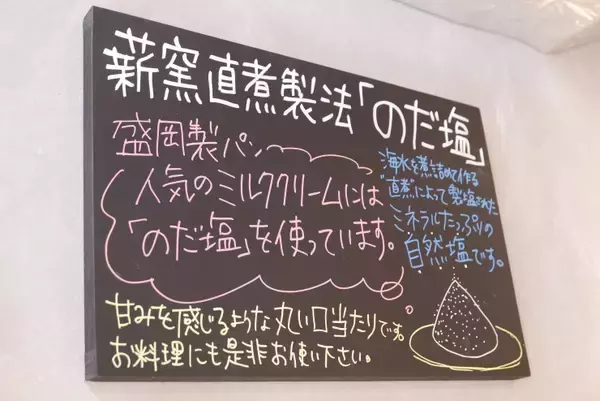 薪窯直煮製法「のだ塩」
盛岡製パン
人気のミルククリームには
「のだ塩」を使っています。
海水を煮詰めて作る
"直煮"によって製塩された
ミネラルたっぷりの
自然塩です。
甘みを感じるような丸い口当たりです。
お料理にも是非お使い下さい。